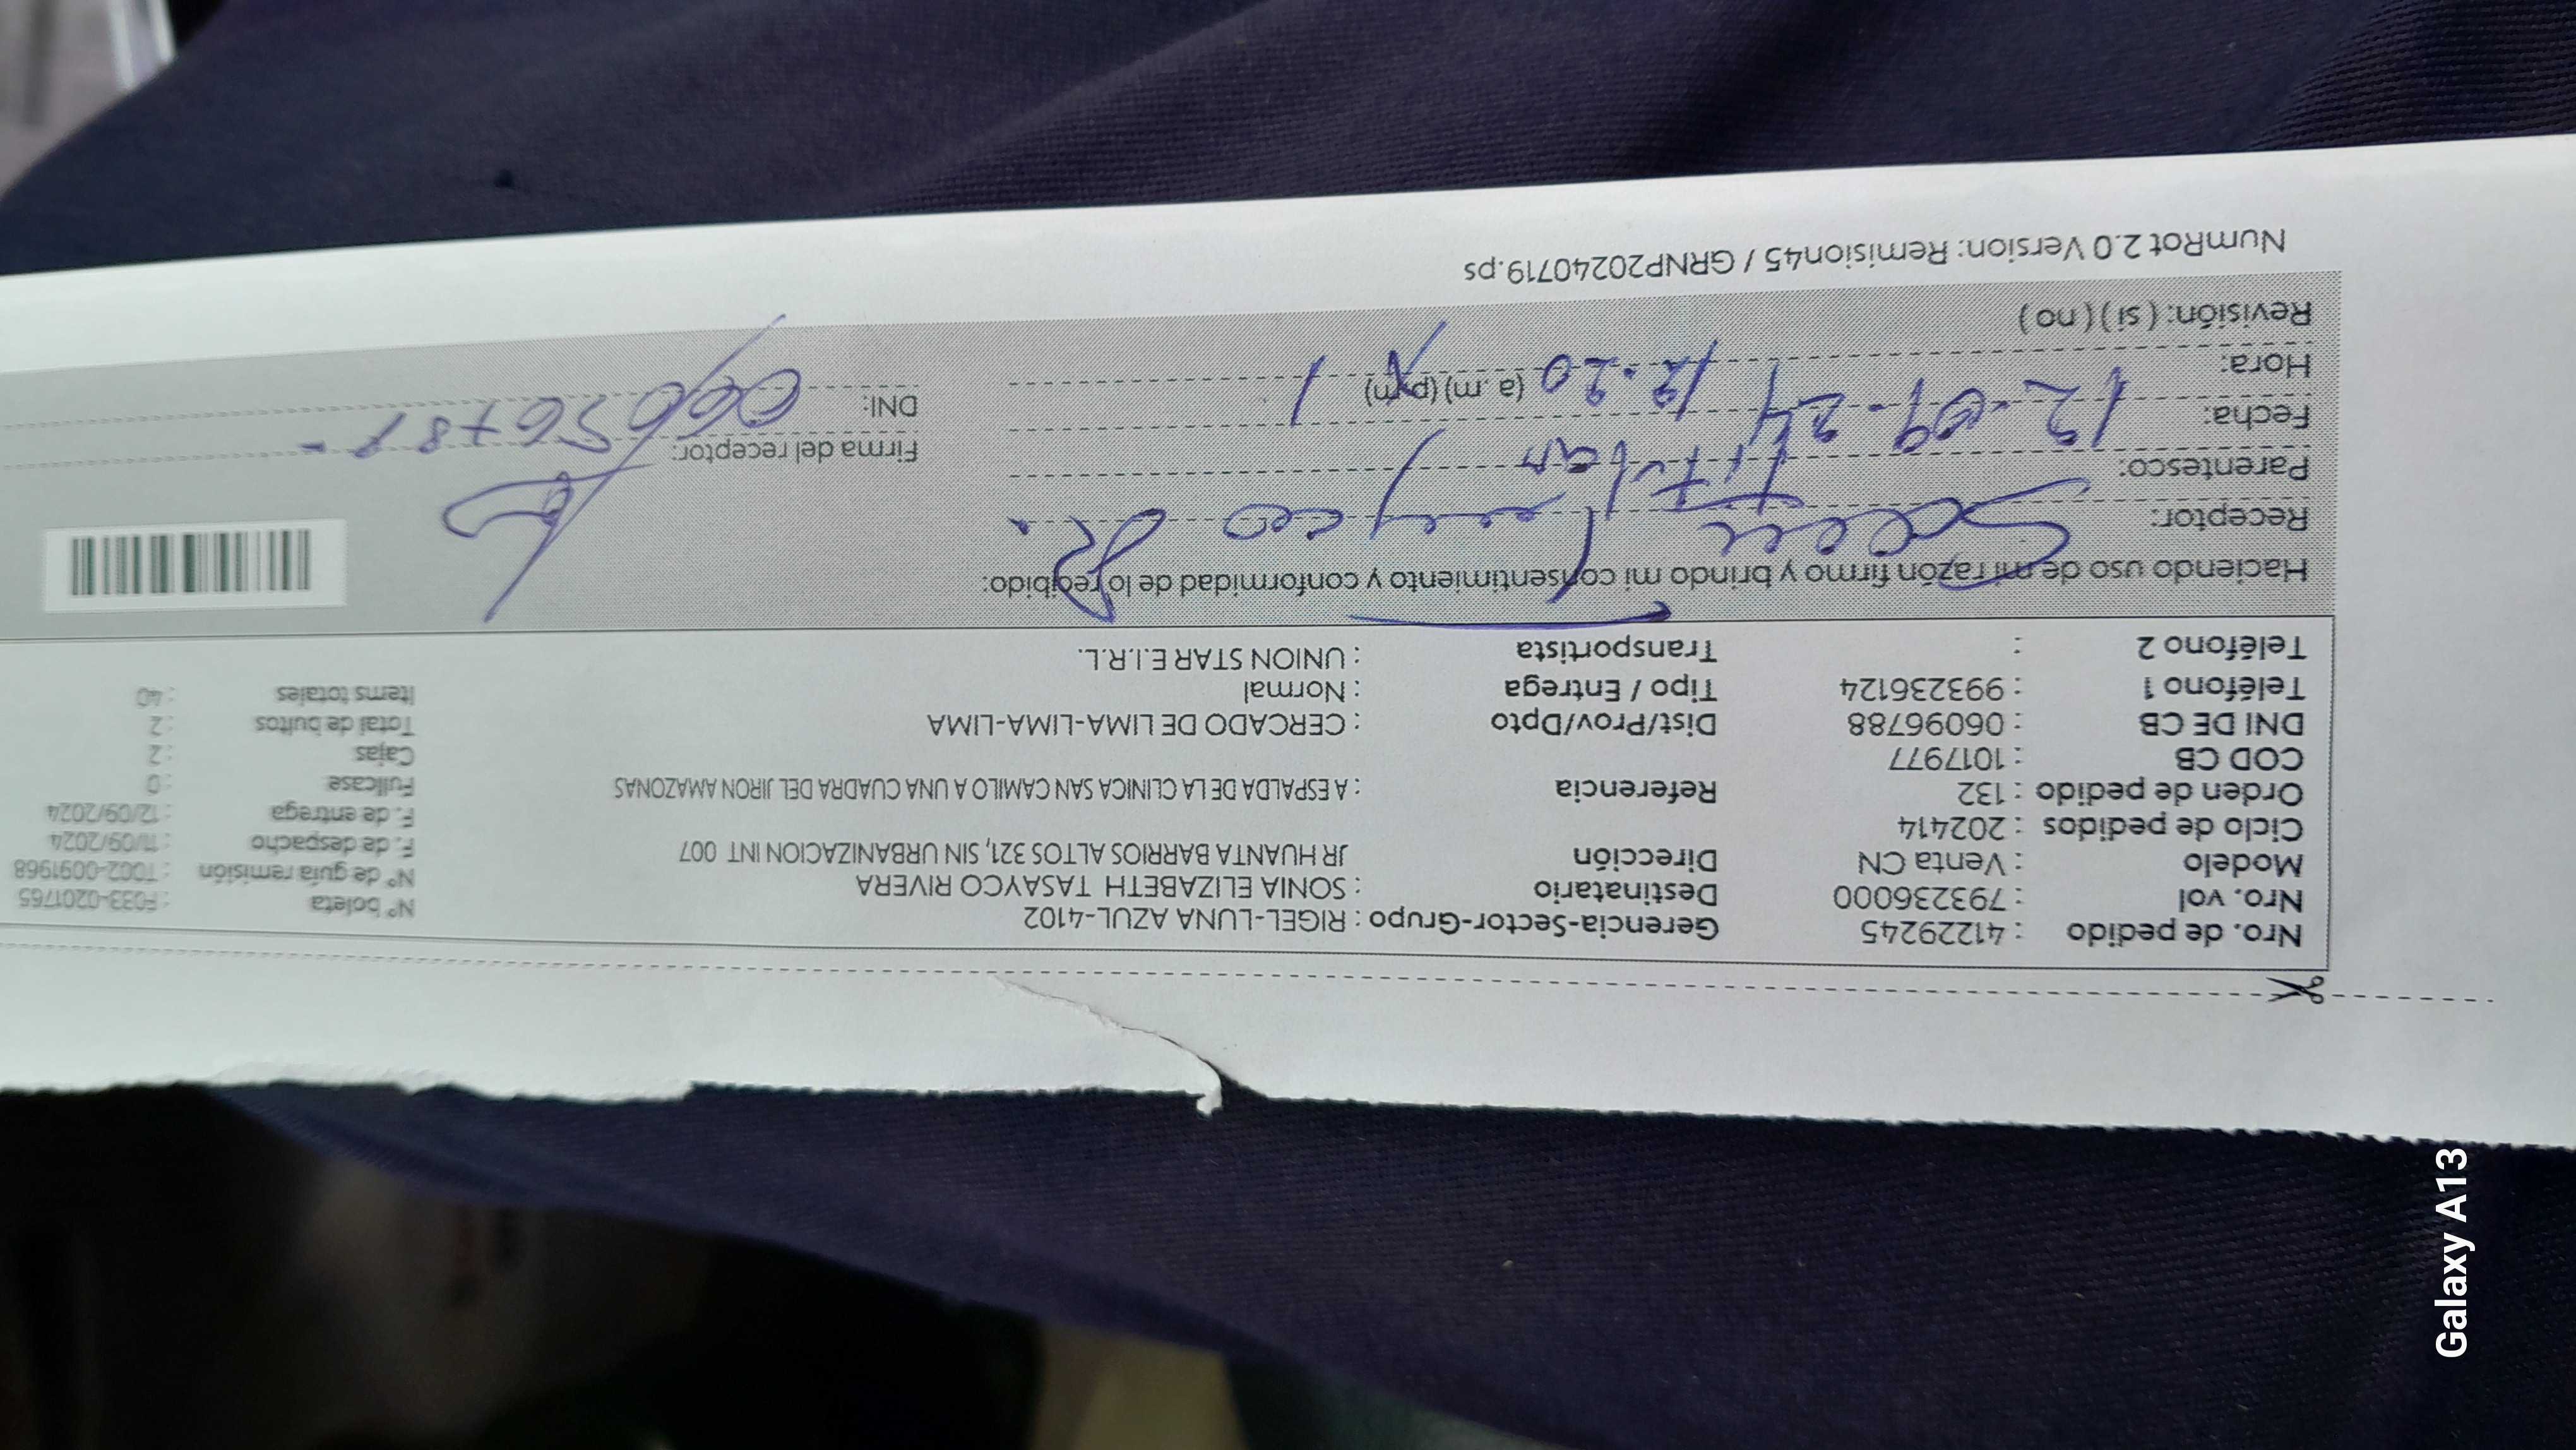 Nro. de pedido : 41229245
Nro. vol : 793236000
Modelo : Venta CN
Ciclo de pedidos : 202414
Orden de pedido : 132
COD CB : 1017977
DNI DE CB : 06096788
Teléfono 1 : 993236124
Teléfono 2 :
Gerencia-Sector-Grupo : RIGEL-LUNA AZUL-4102
Destinatario : SONIA ELIZABETH TASAYCO RIVERA
Dirección JR HUANTA BARRIOS ALTOS 321, SIN URBANIZACION INT 007
Referencia : A ESPALDA DE LA CLINICA SAN CAMILO A UNA CUADRA DEL JIRON AMAZONAS
Dist/Prov/Dpto : CERCADO DE LIMA-LIMA-LIMA
Tipo / Entrega : Normal
Transportista : UNION STAR E.I.R.L.
N° boleta : F033-0201765
N° de guía remisión : T002-0091968
F. de despacho : 11/09/2024
F. de entrega : 12/09/2024
Fullcase : 0
Cajas : 2
Total de bultos : 2
Items totales : 40
Haciendo uso de mi razón firmo y brindo mi consentimiento y conformidad de lo recibido:
Receptor: Tasayco R.
Parentesco: Titular
Fecha: 12-09-24
Hora: 12.20 (a. m) (p.m)
Revisión: ( si ) ( no )
Firma del receptor:
DNI:
NumRot 2.0 Version: Remision45 / GRNP20240719.ps
Galaxy A13